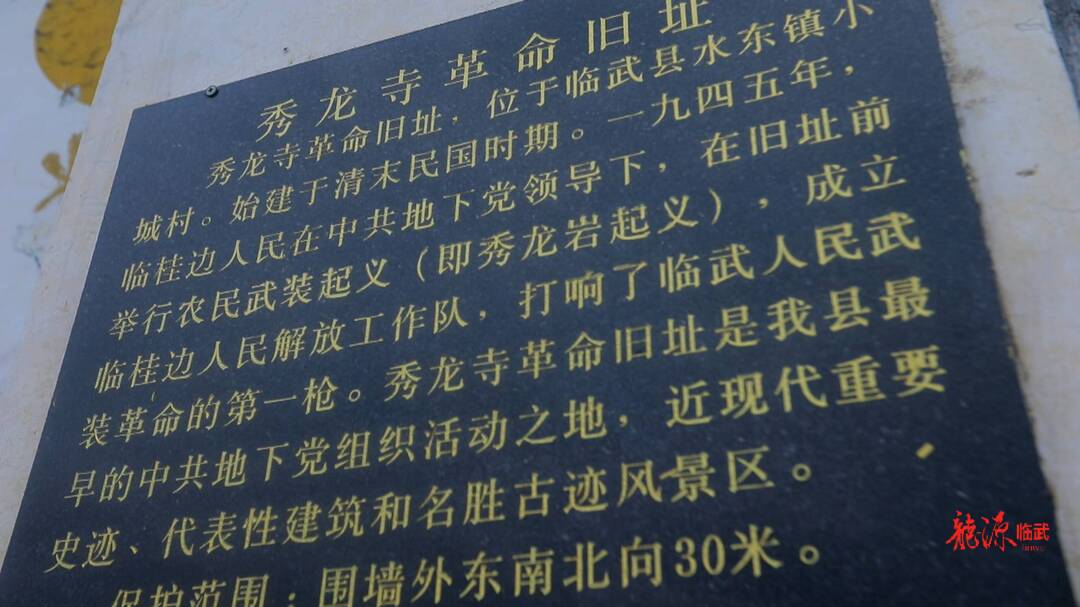 秀龙寺革命旧址
秀龙寺革命旧址，位于临武县水东镇小
城村。始建于清末民国时期。一九四五年，
临桂边人民在中共地下党领导下，在旧址前
举行农民武装起义（即秀龙岩起义），成立
临桂边人民解放工作队，打响了临武人民武
装革命的第一枪。秀龙寺革命旧址是我县最
早的中共地下党组织活动之地，近现代重要
史迹、代表性建筑和名胜古迹风景区。
保护范围：围墙外东南北向30米。
龍源临武